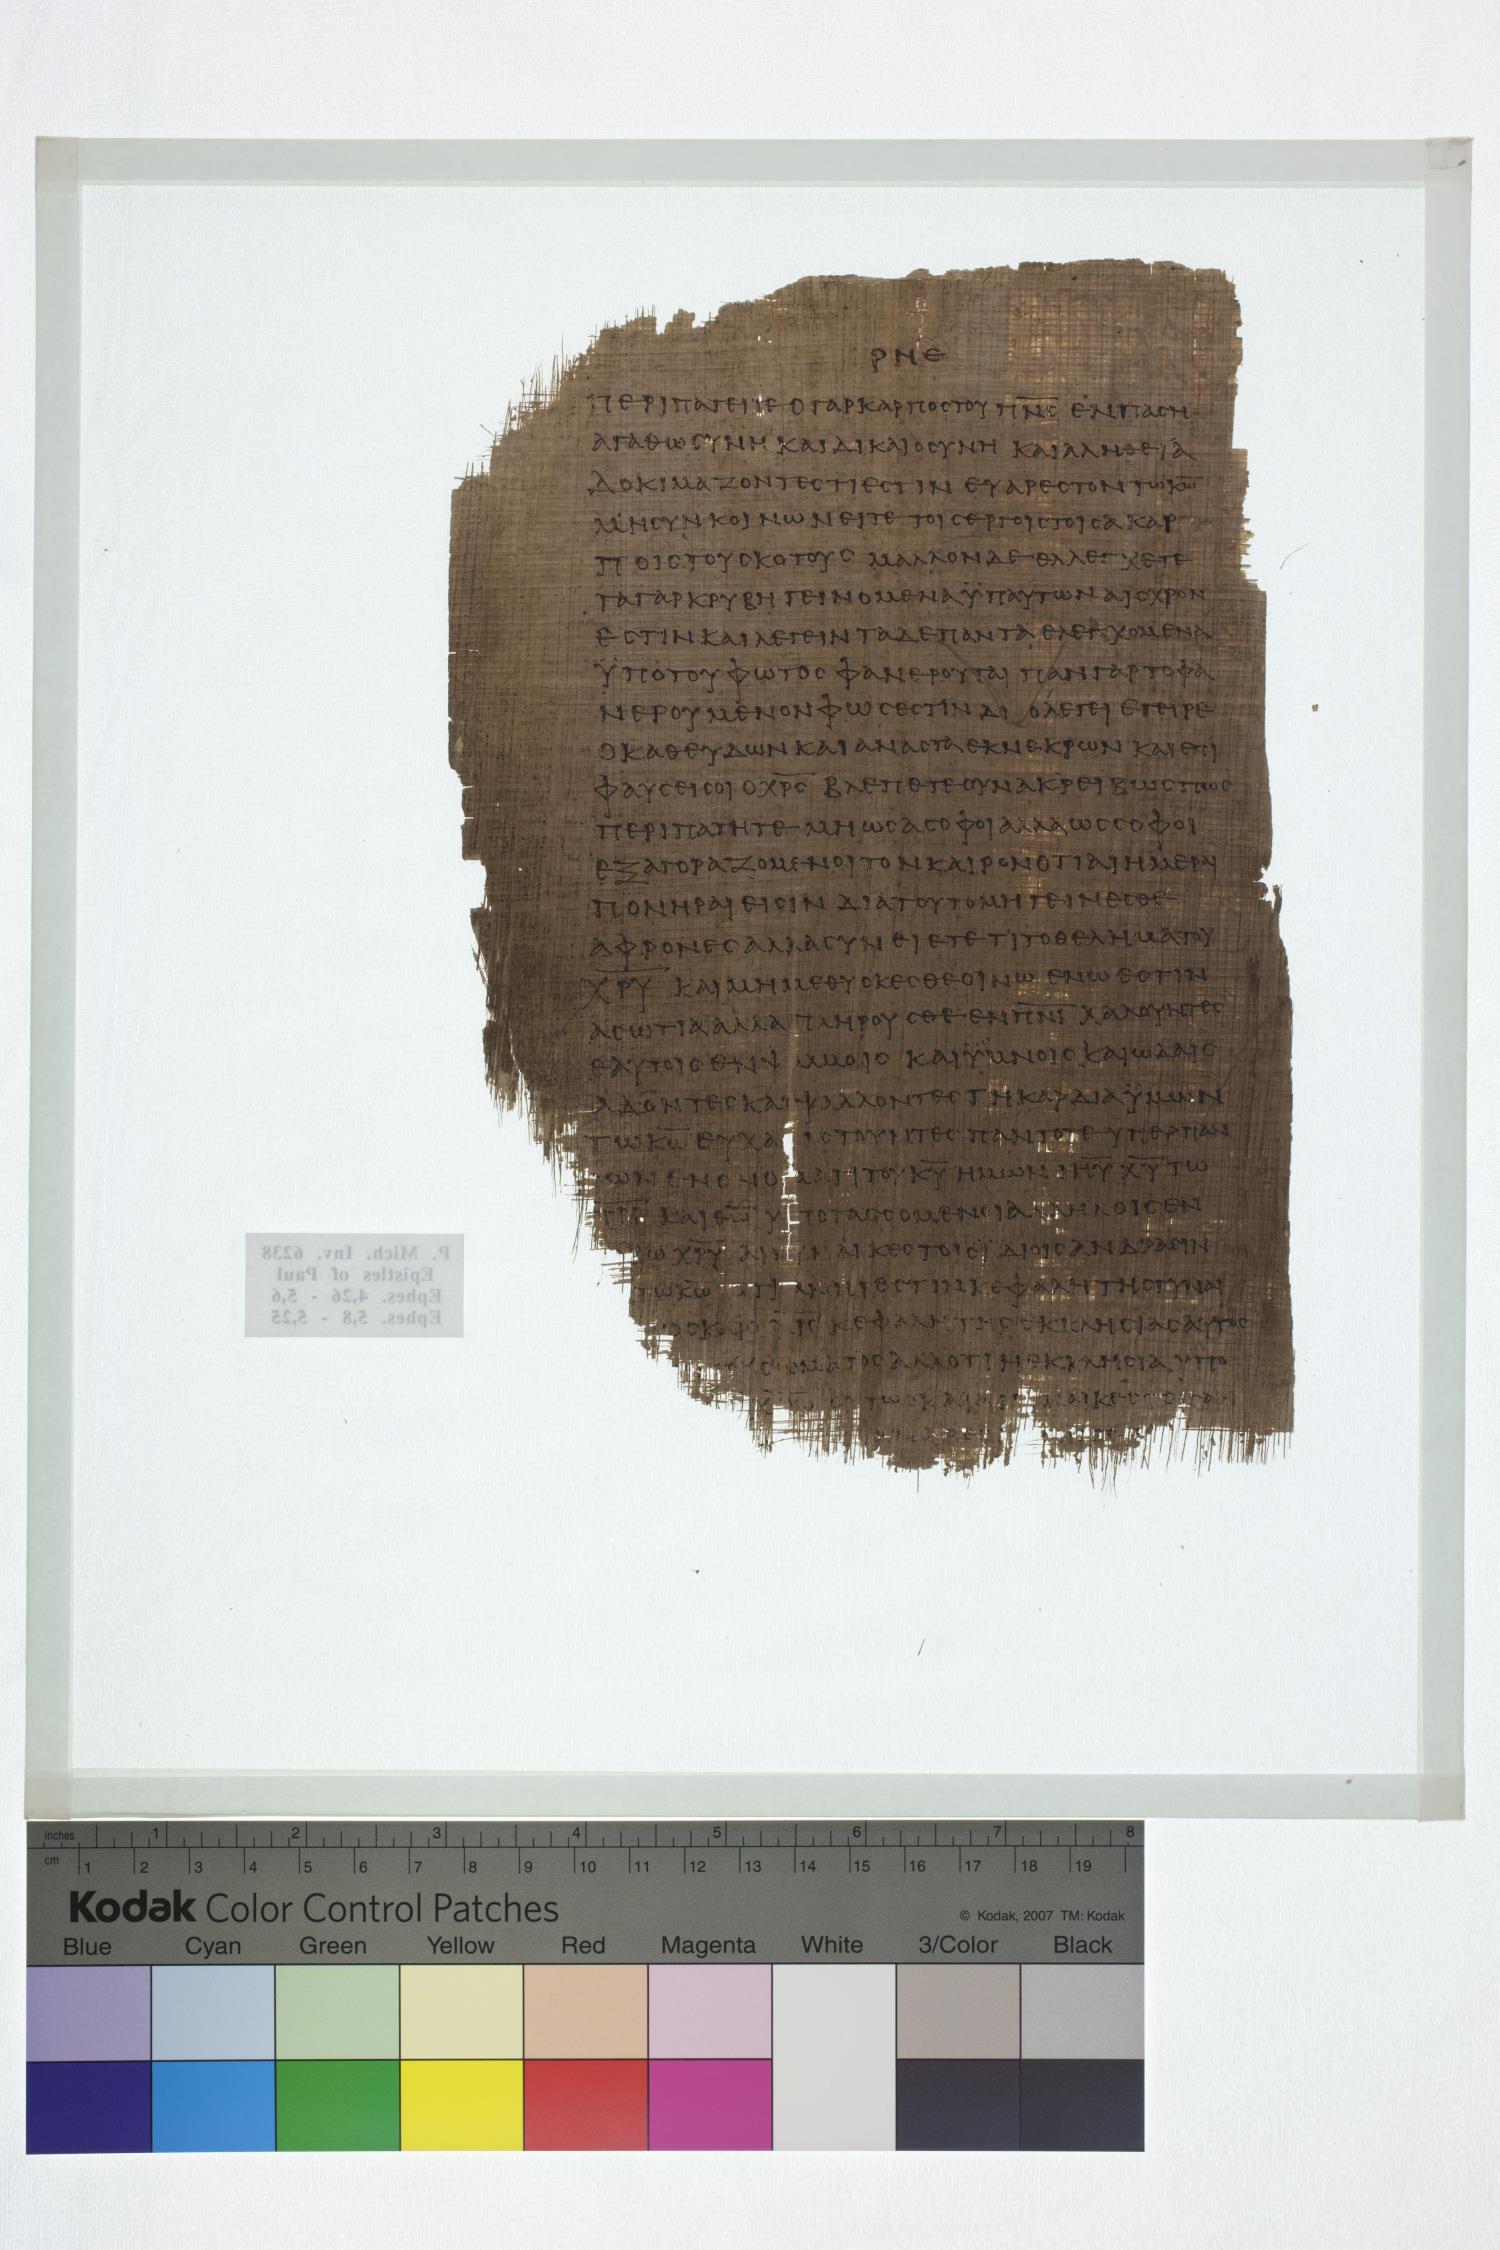 ΡΝΕ
ΠΕΡΙΠΑΤΕΙΤΕ Ο ΓΑΡ ΚΑΡΠΟΣ ΤΟΥ Π̅Ν̅Σ̅ ΕΝ ΠΑΣΗ
ΑΓΑΘΩΣΥΝΗ ΚΑΙ ΔΙΚΑΙΟΣΥΝΗ ΚΑΙ ΑΛΗΘΕΙΑ
ΔΟΚΙΜΑΖΟΝΤΕΣ ΤΙ ΕΣΤΙΝ ΕΥΑΡΕΣΤΟΝ ΤΩ Κ̅Ω̅
ΜΗ ΣΥΝΚΟΙΝΩΝΕΙΤΕ ΤΟΙΣ ΕΡΓΟΙΣ ΤΟΙΣ ΑΚΑΡ
ΠΟΙΣ ΤΟΥ ΣΚΟΤΟΥΣ ΜΑΛΛΟΝ ΔΕ ΕΛΛΕΓΧΕΤΕ
ΤΑ ΓΑΡ ΚΡΥΒΗ ΓΕΙΝΟΜΕΝΑ ΫΠ ΑΥΤΩΝ ΑΙΣΧΡΟΝ
ΕΣΤΙΝ ΚΑΙ ΛΕΓΕΙΝ ΤΑ ΔΕ ΠΑΝΤΑ ΕΛΕΓΧΟΜΕΝΑ
ΫΠΟ ΤΟΥ ΦΩΤΟΣ ΦΑΝΕΡΟΥΤΑΙ ΠΑΝ ΓΑΡ ΤΟ ΦΑ
ΝΕΡΟΥΜΕΝΟΝ ΦΩΣ ΕΣΤΙΝ ΔΙΟ ΛΕΓΕΙ ΕΓΕΙΡΕ
Ο ΚΑΘΕΥΔΩΝ ΚΑΙ ΑΝΑΣΤΑ ΕΚ ΝΕΚΡΩΝ ΚΑΙ ΕΠΙ
ΦΑΥΣΕΙ ΣΟΙ Ο Χ̅Ρ̅Σ̅ ΒΛΕΠΕΤΕ ΟΥΝ ΑΚΡΕΙΒΩΣ ΠΩΣ
ΠΕΡΙΠΑΤΗΤΕ ΜΗ ΩΣ ΑΣΟΦΟΙ ΑΛΛΑ ΩΣ ΣΟΦΟΙ
ΕΞΑΓΟΡΑΖΟΜΕΝΟΙ ΤΟΝ ΚΑΙΡΟΝ ΟΤΙ ΑΙ ΗΜΕΡΑΙ
ΠΟΝΗΡΑΙ ΕΙΣΙΝ ΔΙΑ ΤΟΥΤΟ ΜΗ ΓΕΙΝΕΣΘΕ
ΑΦΡΟΝΕΣ ΑΛΛΑ ΣΥΝΕΙΕΤΕ ΤΙ ΤΟ ΘΕΛΗΜΑ ΤΟΥ
Χ̅Ρ̅Υ̅ ΚΑΙ ΜΗ ΜΕΘΥΣΚΕΣΘΕ ΟΙΝΩ ΕΝ Ω ΕΣΤΙΝ
ΑΣΩΤΙΑ ΑΛΛΑ ΠΛΗΡΟΥΣΘΕ ΕΝ Π̅Ν̅Ι̅ ΛΑΛΟΥΝΤΕΣ
ΕΑΥΤΟΙΣ ΕΝ Ψ ΜΜΟΙΣ ΚΑΙ ΫΜΝΟΙΣ ΚΑΙ ΩΔΑΙΣ
ΑΔΟΝΤΕΣ ΚΑΙ ΨΑΛΛΟΝΤΕΣ ΤΗ ΚΑΡΔΙΑ ΫΜΩΝ
ΤΩ Κ̅Ω̅ ΕΥΧΑ ΙΣΤΟΥΝΤΕΣ ΠΑΝΤΟΤΕ ΥΠΕΡ ΠΑΝ
ΩΝ ΕΝ ΟΝΟΜΑΤΙ ΤΟΥ Κ̅Υ̅ ΗΜΩΝ Ι̅Η̅Υ̅ Χ̅Υ̅ ΤΩ
Π̅Ρ̅Ι̅ ΚΑΙ Θ̅Ω̅ ΥΠΟΤΑΣΣΟΜΕΝΟΙ ΑΛΛΗΛΟΙΣ ΕΝ
Ω Χ̅Ρ̅Υ̅ ΑΙ ΓΥΝΑΙΚΕΣ ΤΟΙΣ ΙΔΙΟΙΣ ΑΝΔΡΑΣΙΝ
ΩΣ ΤΩ Κ̅Ω̅ ΟΤΙ ΑΝΗΡ ΕΣΤΙΝ ΚΕΦΑΛΗ ΤΗΣ ΓΥΝΑΙ
ΚΟΣ ΩΣ ΚΑΙ Ο Χ̅Ρ̅Σ̅ ΚΕΦΑΛΗ ΤΗΣ ΕΚΚΛΗΣΙΑΣ ΑΥΤΟΣ
ΣΩΜΑΤΟΣ ΑΛΛ Ο ΤΙ Η ΕΚΚΛΗΣΙΑ ΥΠΟ
ΟΥΤΩΣ ΚΑΙ ΑΙ ΓΥΝΑΙΚΕΣ ΤΟΙΣ ΑΝ
P. Mich. Inv. 6238
Epistles of Paul
Ephes. 4,26 - 5,6
Ephes. 5,8 - 5,25
inches 1 2 3 4 5 6 7 8
cm 1 2 3 4 5 6 7 8 9 10 11 12 13 14 15 16 17 18 19
Kodak Color Control Patches
© Kodak, 2007 TM: Kodak
Blue Cyan Green Yellow Red Magenta White 3/Color Black